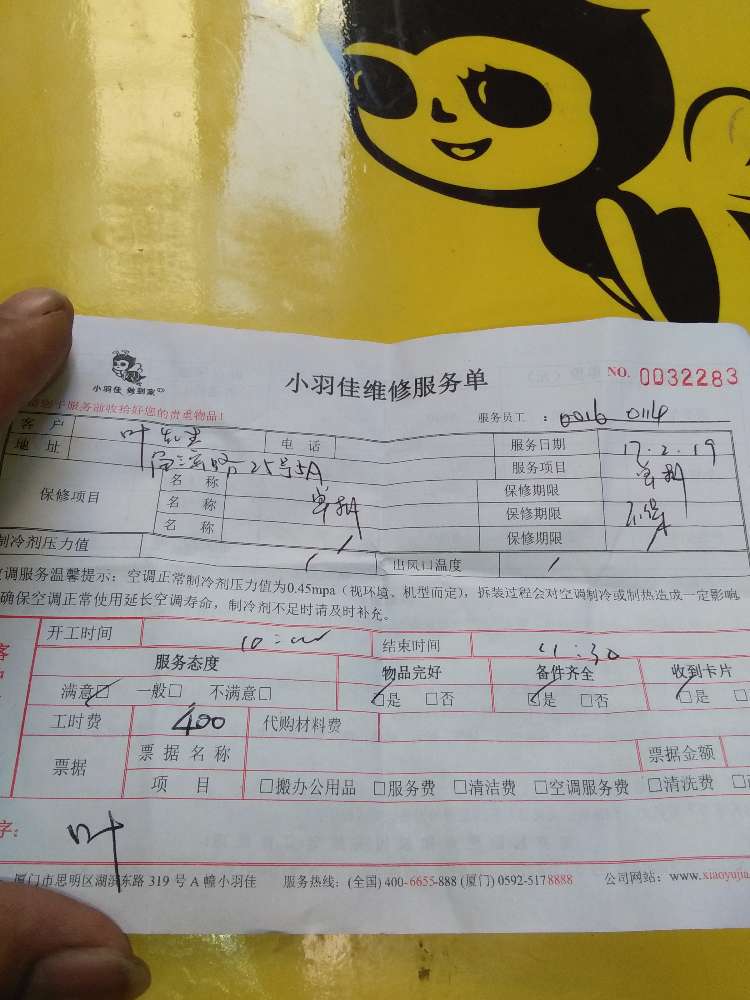 小羽佳 做到家
小羽佳维修服务单
NO. 0032283
服务前收拾好您的贵重物品!
服务员工 : 0016 0114
客 户 叶 电 话 服务日期 17.2.19
地 址 25号5A 服务项目
保修项目 名 称 保修期限
名 称 保修期限
名 称 保修期限
制冷剂压力值 / 出风口温度 /
调服务温馨提示: 空调正常制冷剂压力值为0.45mpa (视环境、机型而定), 拆装过程会对空调制冷或制热造成一定影响
确保空调正常使用延长空调寿命, 制冷剂不足时请及时补充。
开工时间 10:00 结束时间 11:30
服务态度 物品完好 备件齐全 收到卡片
满意☑ 一般□ 不满意□ ☑是 □否 ☑是 □否 ☑是
工时费 400 代购材料费
票据 票 据 名 称 票据金额
项 目 □搬办公用品 □服务费 □清洁费 □空调服务费 □清洗费
字: 叶
厦门市思明区湖滨东路 319 号 A 幢小羽佳 服务热线: (全国) 400-6655-888 (厦门) 0592-5178888 公司网站: www.xiaoyujia